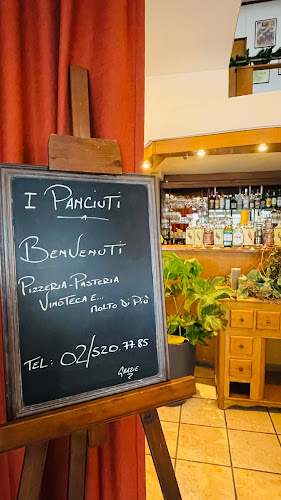 I PANCIUTI
BENVENUTI
PIZZERIA-PASTERIA
VINOTECA E...
MOLTO DI PIÙ
TEL: 02/520.77.85